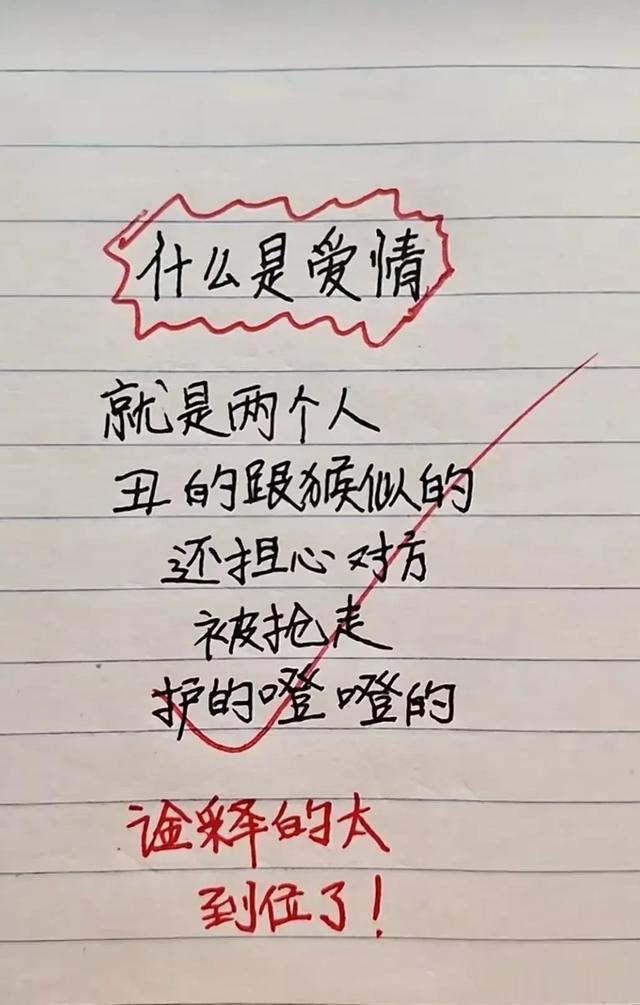 什么是爱情
就是两个人
丑的跟猴似的
还担心对方
被抢走
护的噔噔的
诠释的太
到位了!